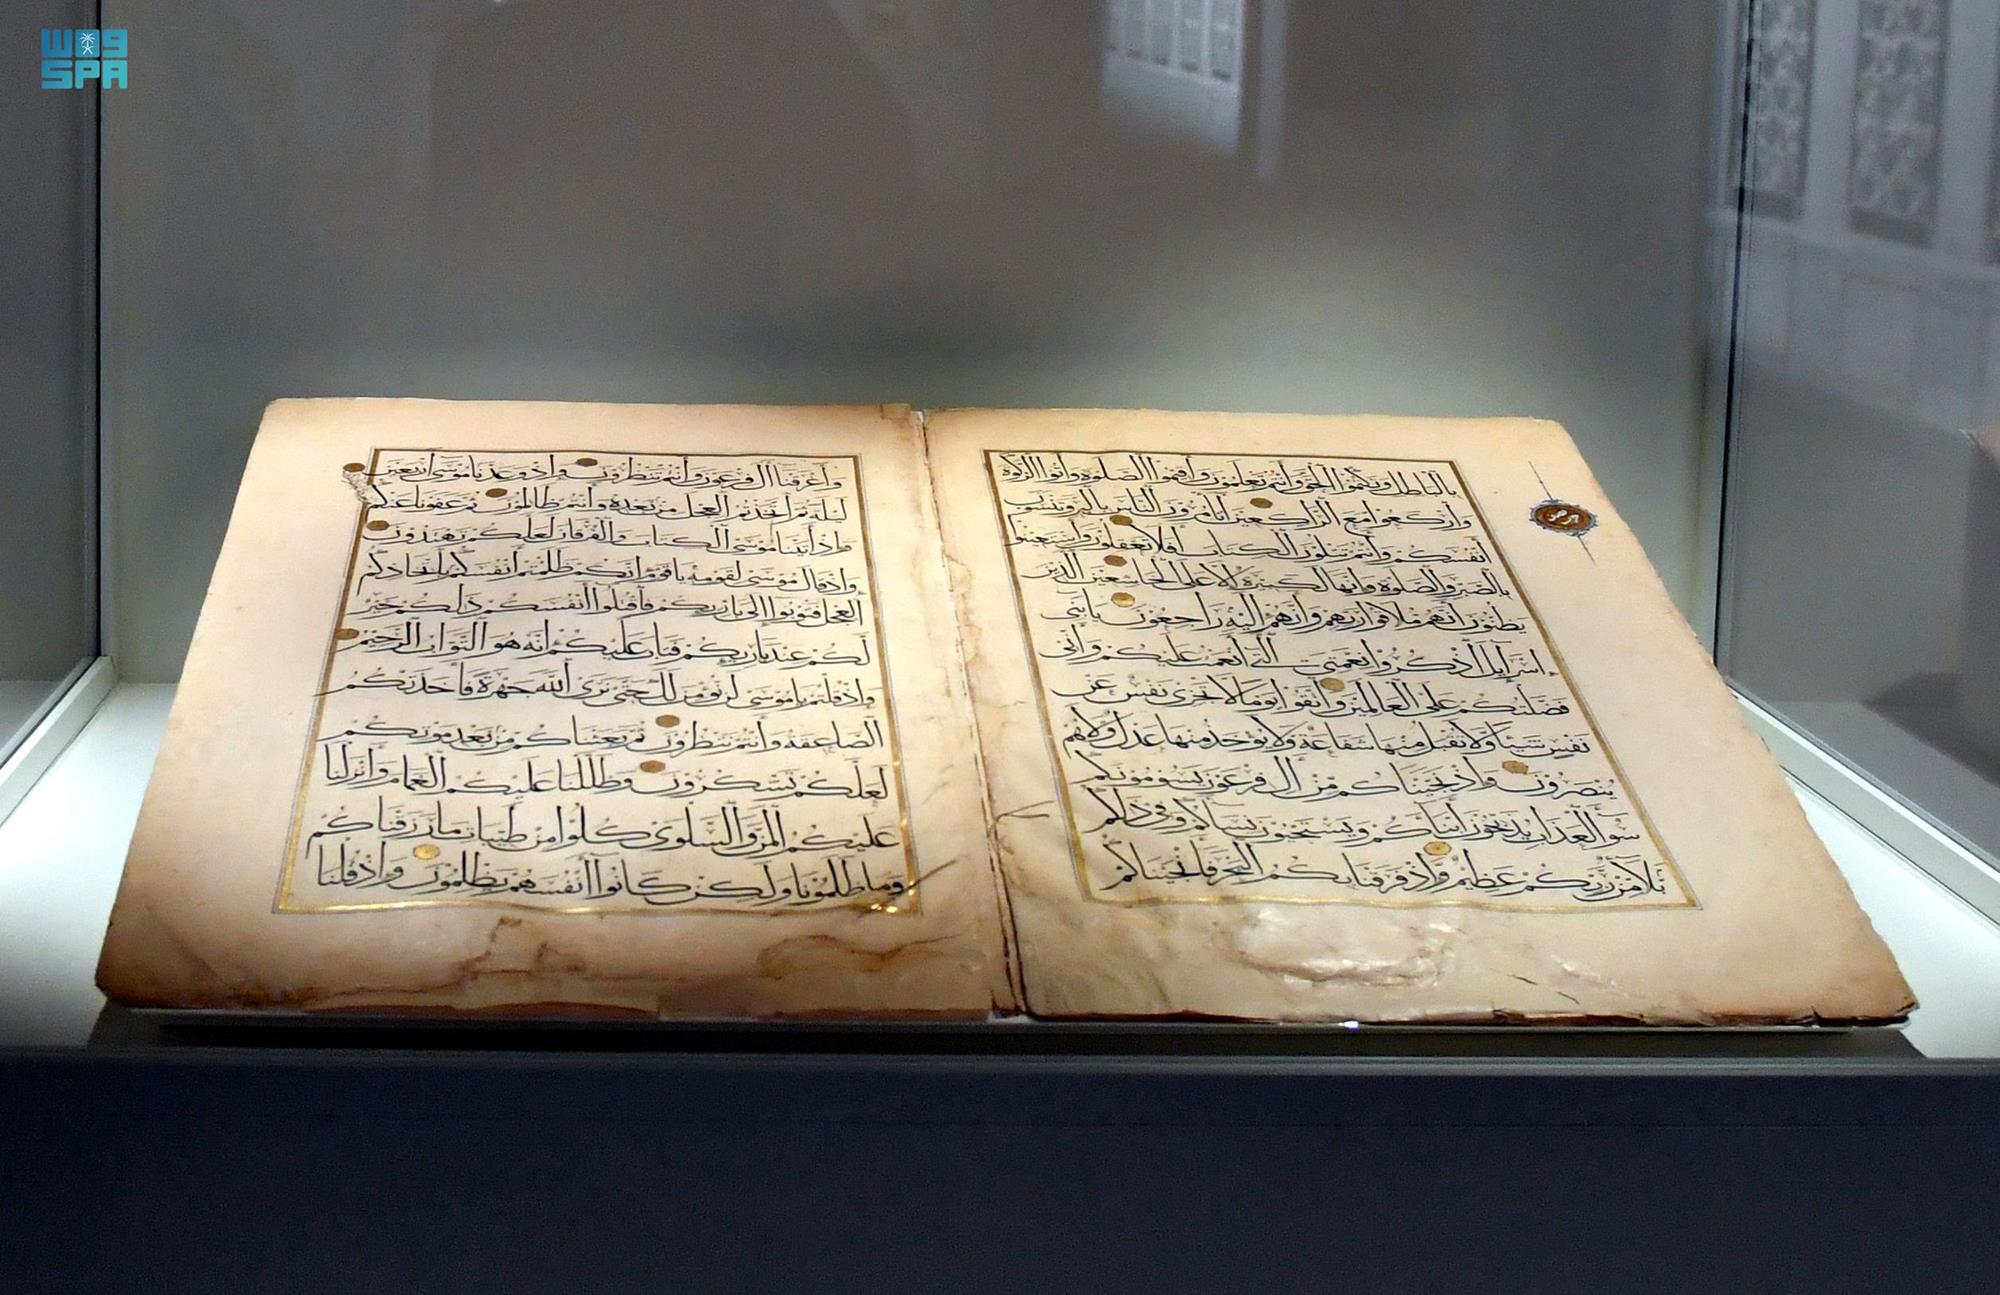 واس
SPA
بالباطل وتكتموا الحق وأنتم تعلمون وأقيموا الصلوة وآتوا الزكوة
واركعوا مع الراكعين أتأمرون الناس بالبر وتنسون
أنفسكم وأنتم تتلون الكتاب أفلا تعقلون واستعينوا
بالصبر والصلوة وإنها لكبيرة إلا على الخاشعين الذين
يظنون أنهم ملاقوا ربهم وأنهم إليه راجعون يا بني
إسرائيل اذكروا نعمتي التي أنعمت عليكم وأني
فضلتكم على العالمين واتقوا يوما لا تجزي نفس عن
نفس شيئا ولا تقبل منها شفاعة ولا يؤخذ منها عدل ولا هم
ينصرون وإذ نجيناكم من آل فرعون يسومونكم
سوء العذاب يذبحون أبناءكم ويستحيون نساءكم وفي ذلكم
بلاء من ربكم عظيم وإذ فرقنا بكم البحر فأنجيناكم
وأغرقنا آل فرعون وأنتم تنظرون وإذ وعدنا موسى أربعين
ليلة ثم اتخذتم العجل من بعده وأنتم ظالمون ثم عفونا عنكم
وإذ آتينا موسى الكتاب والفرقان لعلكم تهتدون
وإذ قال موسى لقومه يا قوم إنكم ظلمتم أنفسكم باتخاذكم
العجل فتوبوا إلى بارئكم فاقتلوا أنفسكم ذلكم خير
لكم عند بارئكم فتاب عليكم إنه هو التواب الرحيم
وإذ قلتم يا موسى لن نؤمن لك حتى نرى الله جهرة فأخذتكم
الصاعقة وأنتم تنظرون ثم بعثناكم من بعد موتكم
لعلكم تشكرون وظللنا عليكم الغمام وأنزلنا
عليكم المن والسلوى كلوا من طيبات ما رزقناكم
وما ظلمونا ولكن كانوا أنفسهم يظلمون وإذ قلنا